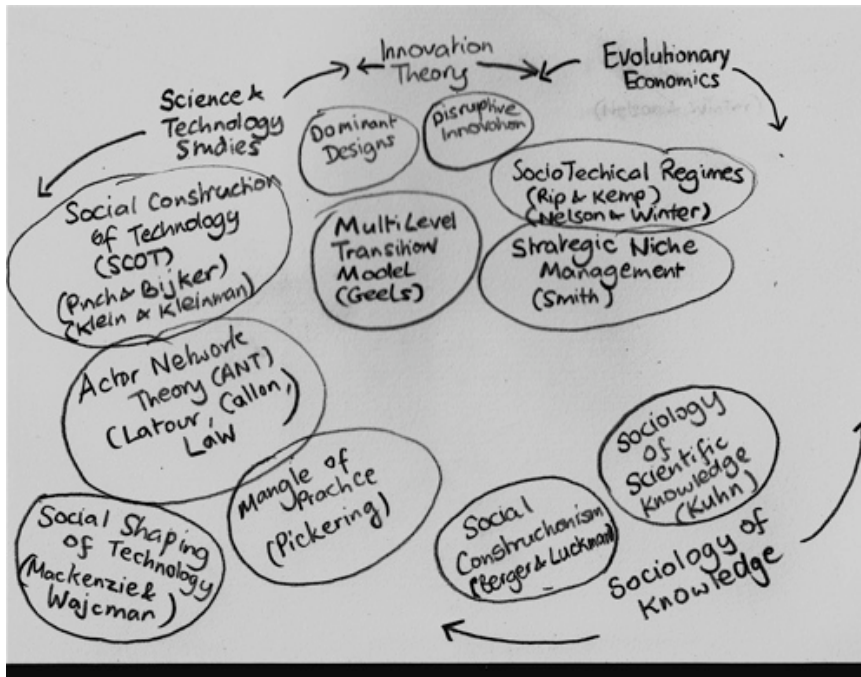 Innovation
Theory
Evolutionary
Economics
(Nelson & Winter)
Science &
Technology
Studies
Dominant
Designs
Disruptive
Innovation
Social Construction
of Technology
(SCOT)
(Pinch & Bijker)
(Klein & Kleinman)
Multi Level
Transition
Model
(Geels)
SocioTechical Regimes
(Rip & Kemp)
(Nelson & Winter)
Strategic Niche
Management
(Smith)
Actor Network
Theory (ANT)
(Latour, Callon,
Law
Mangle of
Practice
(Pickering)
Social Shaping
of Technology
(Mackenzie &
Wajcman)
Social
Constructionism
(Berger & Luckman)
Sociology
of
Scientific
Knowledge
(Kuhn)
Sociology of
Knowledge